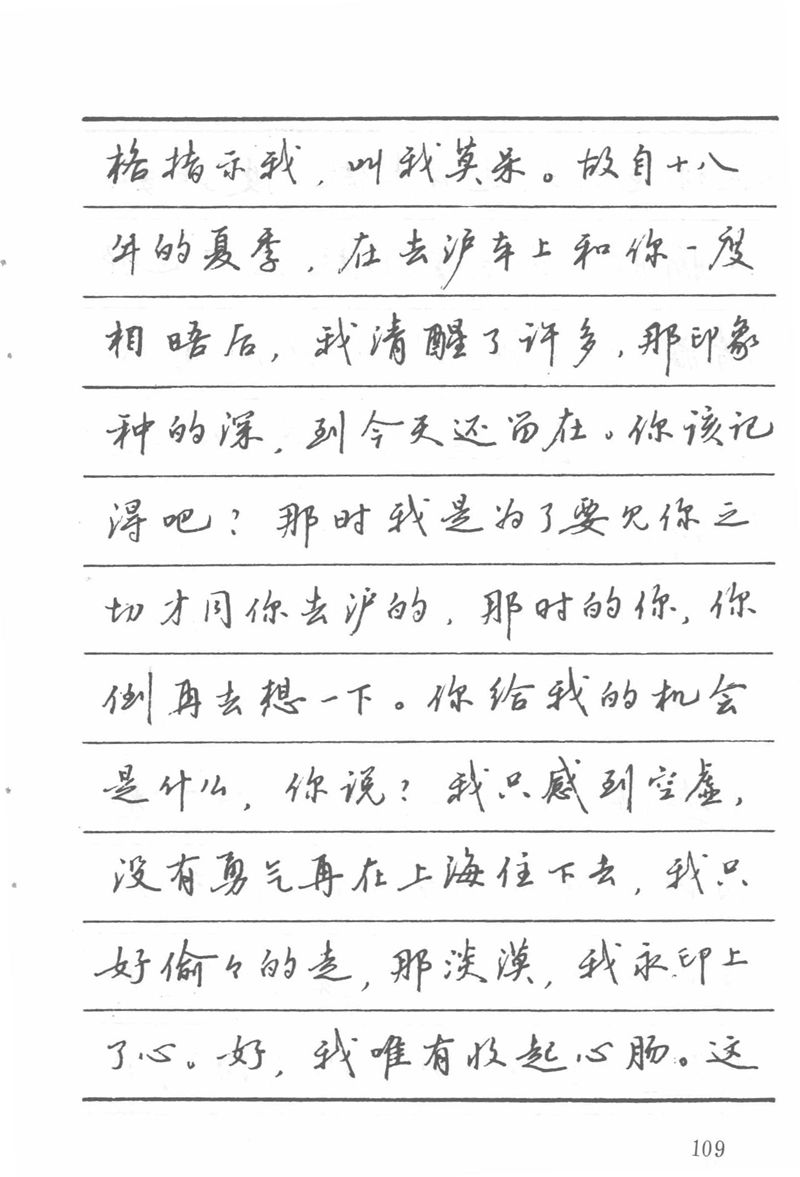 格指示我，叫我莫呆。故自十八
年的夏季，在去沪车上和你一度
相晤后，我清醒了许多，那印象
种的深，到今天还留在。你该记
得吧？那时我是为了要见你之
切才同你去沪的，那时的你，你
倒再去想一下。你给我的机会
是什么，你说？我只感到空虚，
没有勇气再在上海住下去，我只
好偷々的走，那淡漠，我永印上
了心。好，我唯有收起心肠。这
109